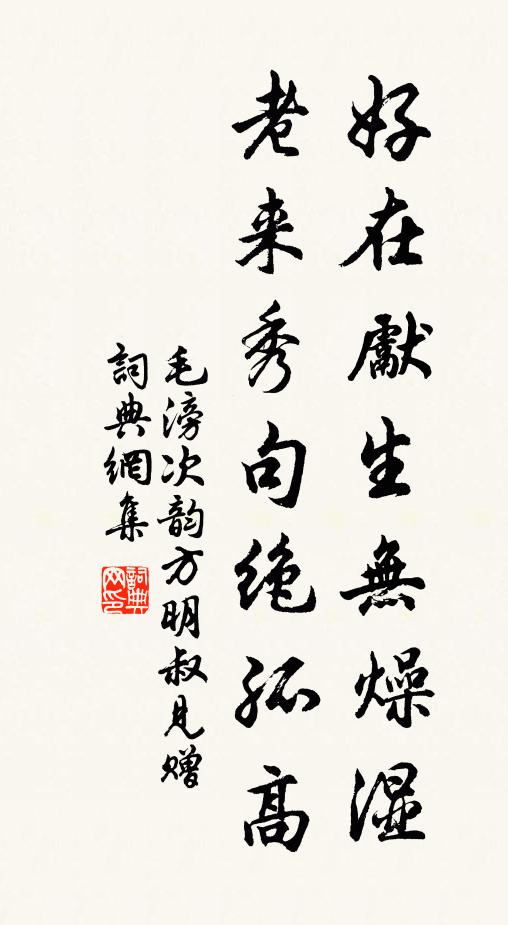 好在獻生無燥湿
老来秀句绝孤高
毛滂次韵方明叔見赠
詞典網集
詞典网印